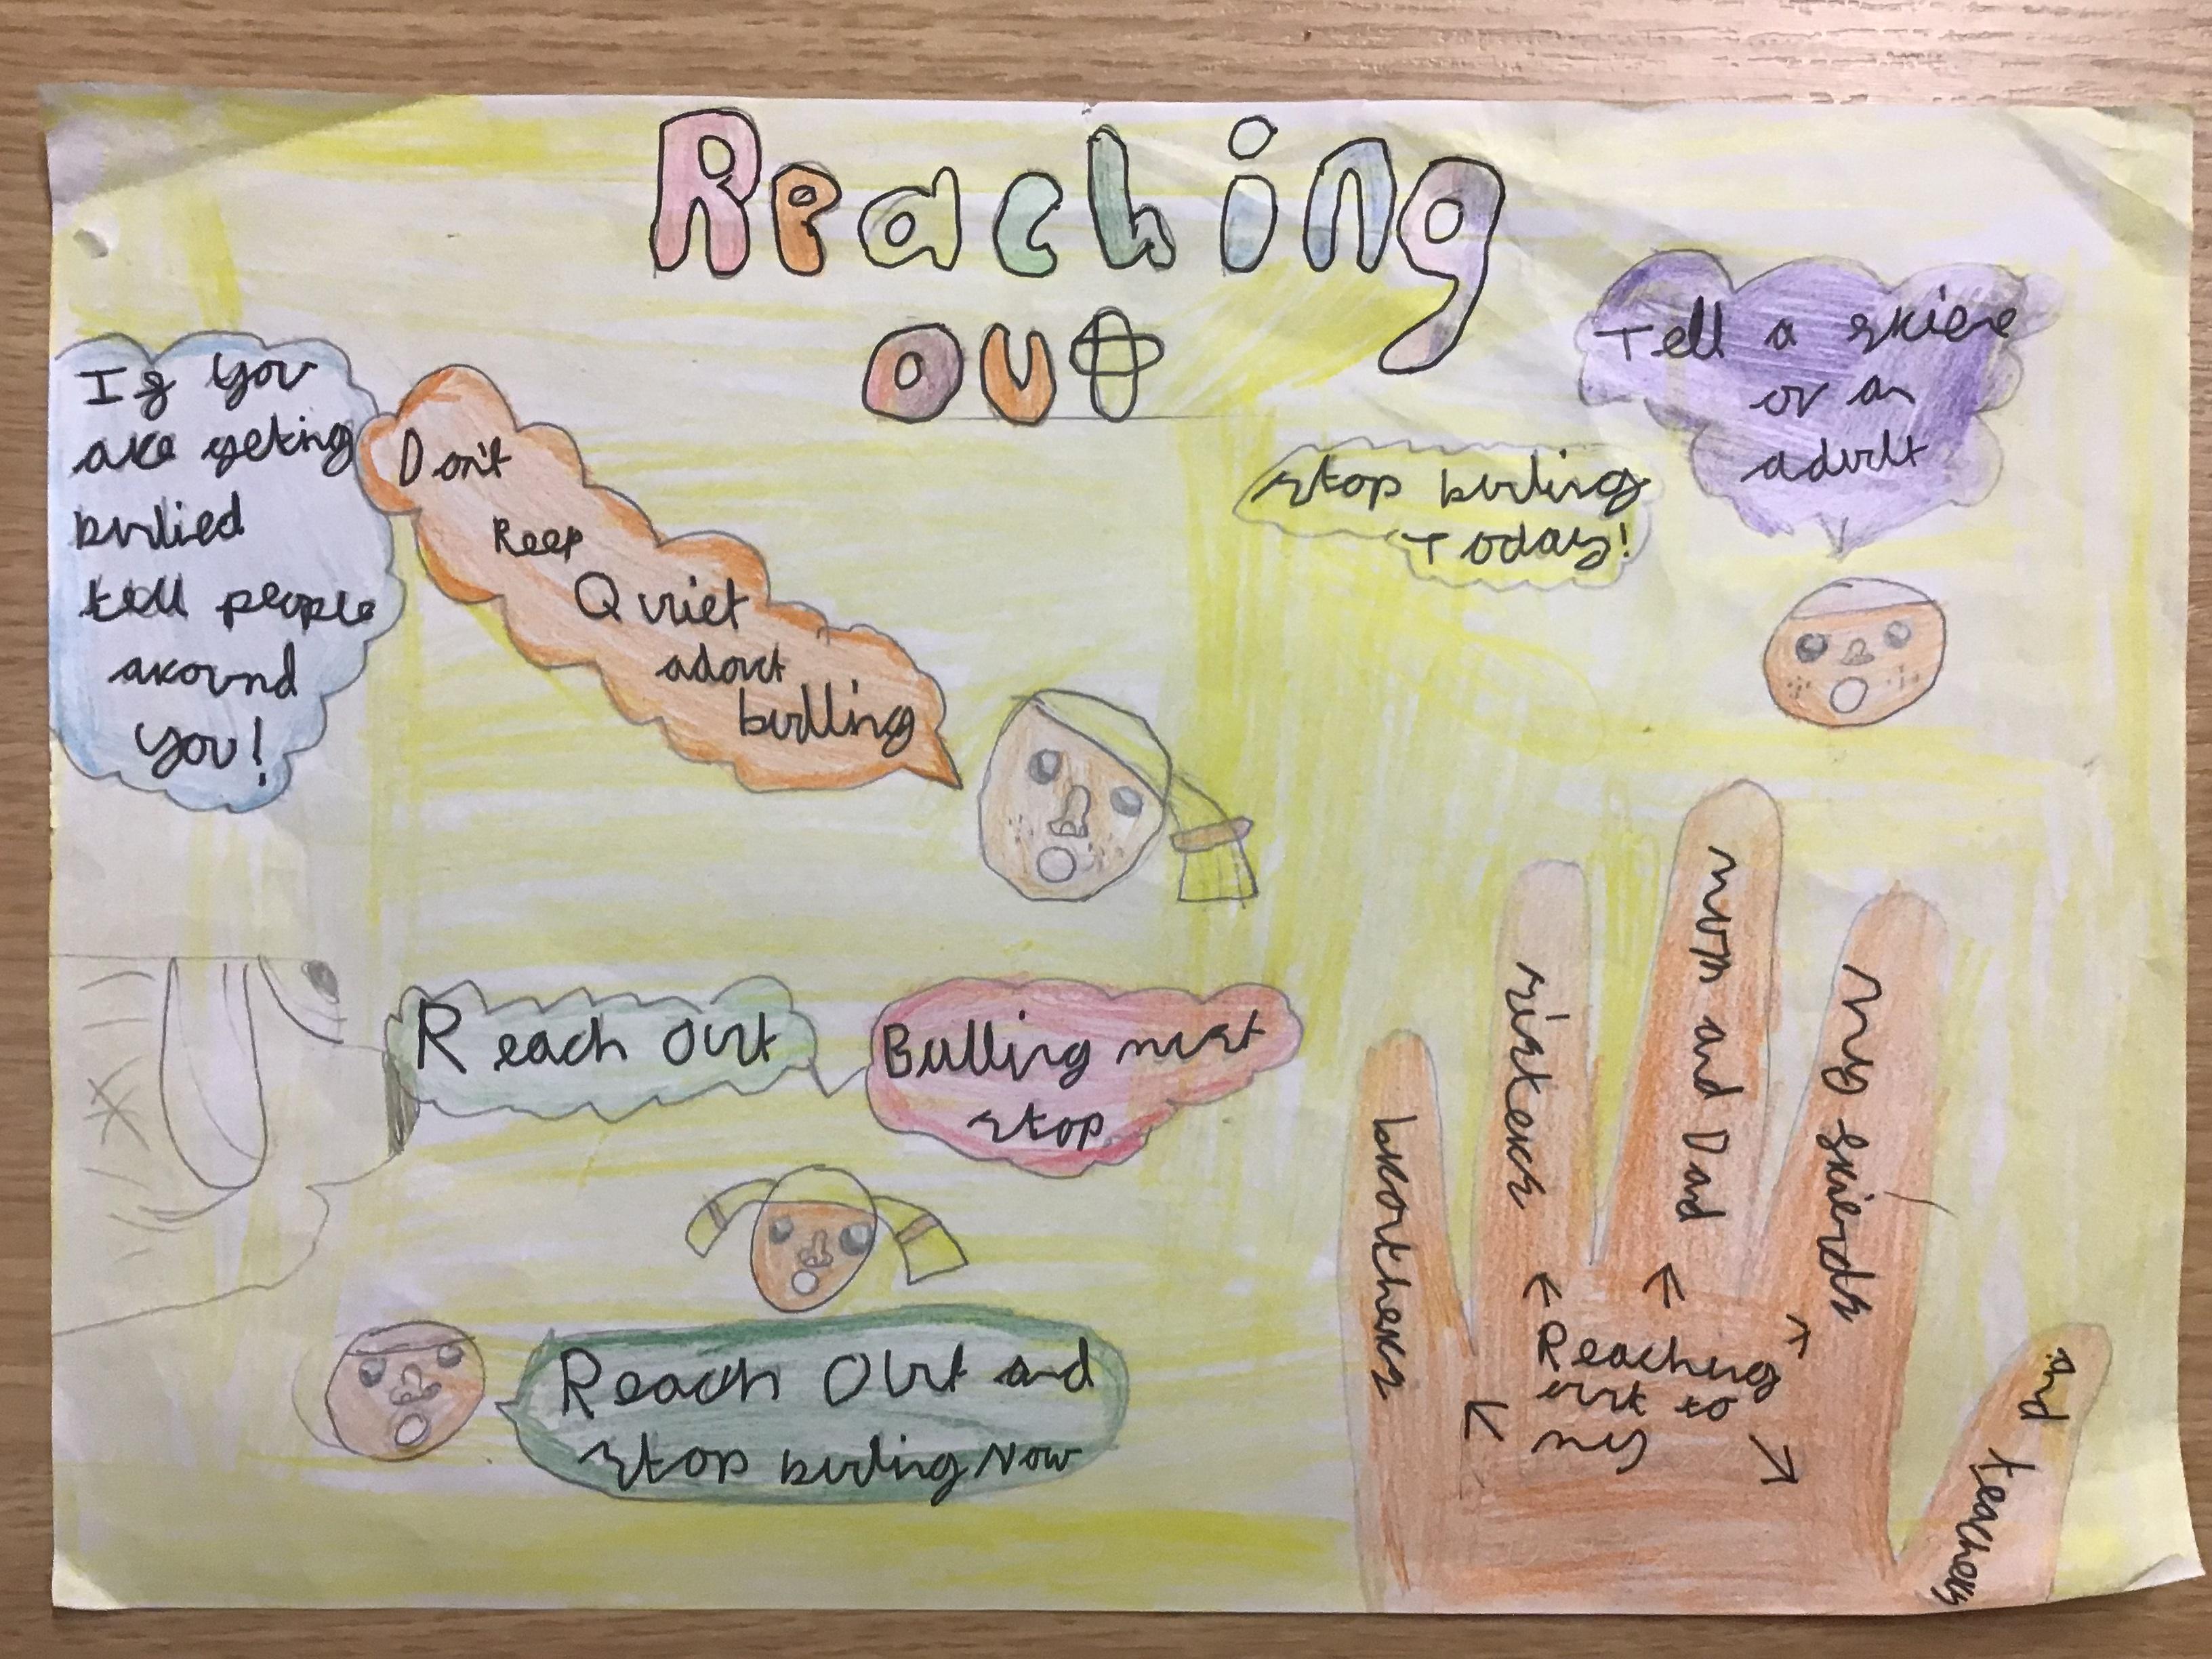 Reaching
out
If you
are geting
bulied
tell people
around
you!
Don't
Keep
Quiet
adout
bulling
stop buling
Today!
Tell a
or an
adult
Reach out
Bulling must
stop
Reach Out and
stop buling Now
brouthers
sisters
mum and Dad
My frierds
and teachers
Reaching
out to
my